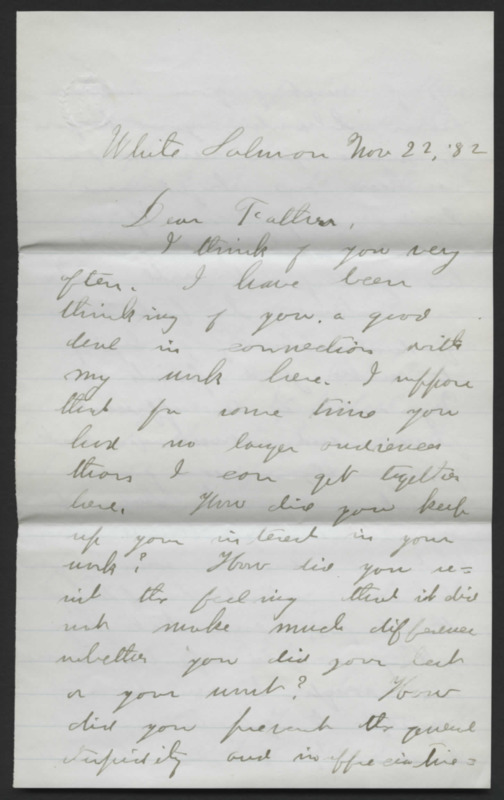 White Salmon Nov 22, '82
Dear Father,
I think of you very
often. I have been
thinking of you a good
deal in connection with
my work here. I suppose
that for some time you
had no larger audiences
than I can get together
here. How did you keep
up your interest in your
work? How did you re=
sist the feeling that it did
not make much difference
whether you did your best
or your worst? How
did you prevent the general
stupidity and inappreciative=